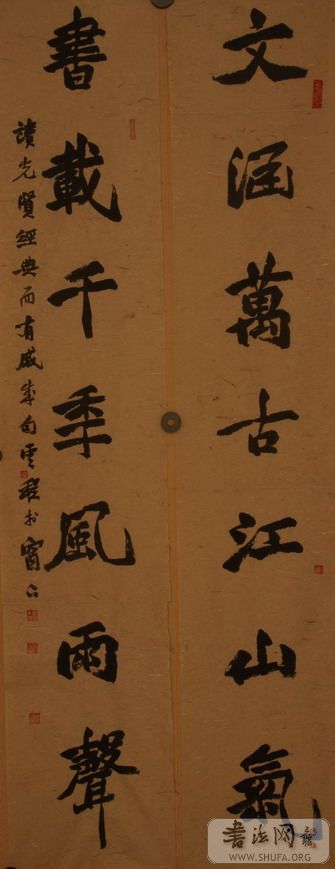 文涵萬古江山氣
書載千季風雨聲
讀先賢經典而有感成句雲程於
書法网
WWW.SHUFA.ORG